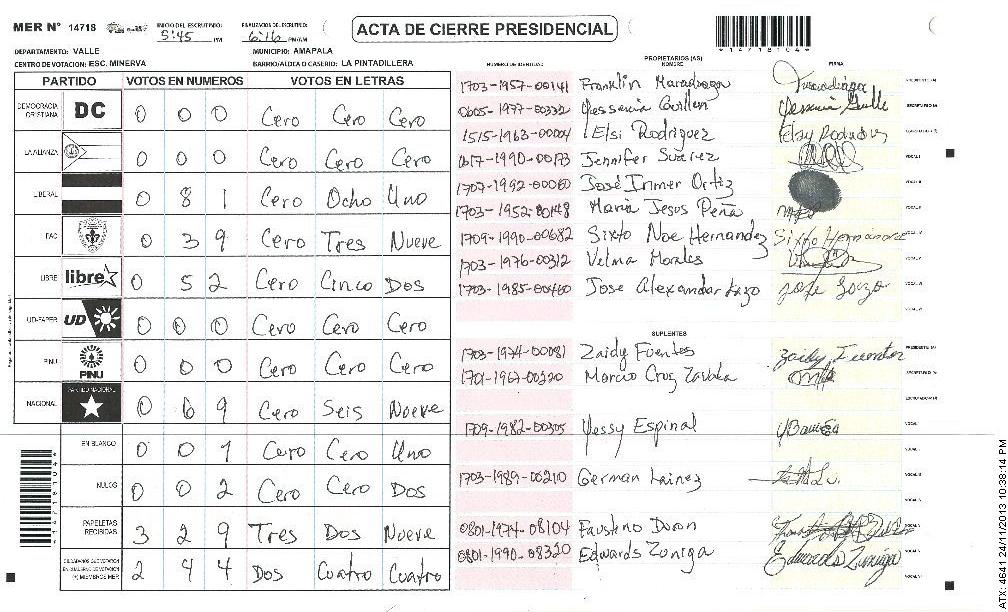 MER Nº 14718 INICIO DEL ESCRUTINIO: 5:45 PM FINALIZACION DEL ESCRUTINIO: 6:16 PM/AM
ACTA DE CIERRE PRESIDENCIAL
*14718104*
DEPARTAMENTO: VALLE MUNICIPIO: AMAPALA
CENTRO DE VOTACION: ESC. MINERVA BARRIO/ALDEA O CASERIO: LA PINTADILLERA
PARTIDO VOTOS EN NUMEROS VOTOS EN LETRAS
DEMOCRACIA CRISTIANA DC 0 0 0 Cero Cero Cero
LA ALIANZA 0 0 0 Cero Cero Cero
LIBERAL 0 8 1 Cero Ocho Uno
PAC 0 3 9 Cero Tres Nueve
LIBRE libre 0 5 2 Cero Cinco Dos
UD-FAPER UD 0 0 0 Cero Cero Cero
PINU PINU 0 0 0 Cero Cero Cero
NACIONAL PARTIDO NACIONAL 0 6 9 Cero Seis Nueve
EN BLANCO 0 0 1 Cero Cero Uno
NULOS 0 0 2 Cero Cero Dos
PAPELETAS RECIBIDAS 3 2 9 Tres Dos Nueve
(+) MIEMBROS MER 2 4 4 Dos Cuatro Cuatro
PROPIETARIOS (AS)
NUMERO DE IDENTIDAD NOMBRE FIRMA
1703-1957-00141 Franklin Maradiaga PRESIDENTE (A)
0605-1977-00332 Yessenia Guillen SECRETARIO (A)
1515-1963-00004 Elsi Rodriguez
0617-1990-00173 Jennifer Suarez VOCAL I
1707-1992-00060 José Irmer Ortiz
1703-1952-00148 Maria Jesus Peña
1709-1990-00682 Sixto Noe Hernandez Sixto Hernandez
1703-1976-00312 Velma Morales
1703-1985-00460 Jose Alexandar Lazo
SUPLENTES
1703-1974-00081 Zaidy Fuentes Zaidy Fuentes PRESIDENTE (A)
1701-1967-00220 Marcio Cruz Zavala SECRETARIO (A)
ESCRUTADOR (A)
1709-1982-00305 Yessy Espinal
1703-1989-00210 German Lainez
0801-1974-08104 Faustino Duron
0801-1990-08320 Edwards Zuniga Edwards Zuniga
*14718104*
ATX: 4641 24/11/2013 10:38:14 PM